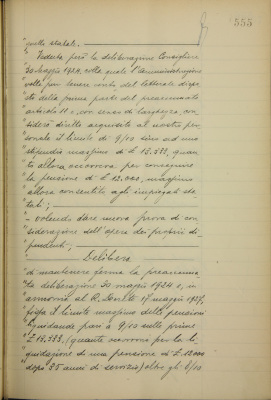 555
" nelle statale.
" Veduta però la deliberazione Consigliare
" 30 maggio 1924, colla quale l'Amministrazione
" volle per tenere conto del letterale dispo-
" sto della prima parte del preaccennato
" articolo 11 e, con senso di larghezza, con-
" siderò diritto acquisito al nostro per-
" sonale il limite di 9/10 sino ad uno
" stipendio massimo di £ 13.333, quan-
" to allora occorreva per conseguire
" la pensione di £ 12.000, massimo
" allora consentito agli impiegati sta-
" tali;
" - volendo dare nuova prova di con-
" siderazione dell'opera dei proprii di-
" pendenti;
Delibera
" di mantenere ferma la preaccenna-
" ta deliberazione 30 maggio 1924 e, in
" armonia al R. Decreto 17 maggio 1927,
" fissa il limite massimo delle pensioni
" liquidande pari a 9/10 sulle prime
" £ 13.333, (quante occorrono per la li-
" quidazione di una pensione di £ 12.000
" dopo 35 anni di servizio) oltre gli 8/10